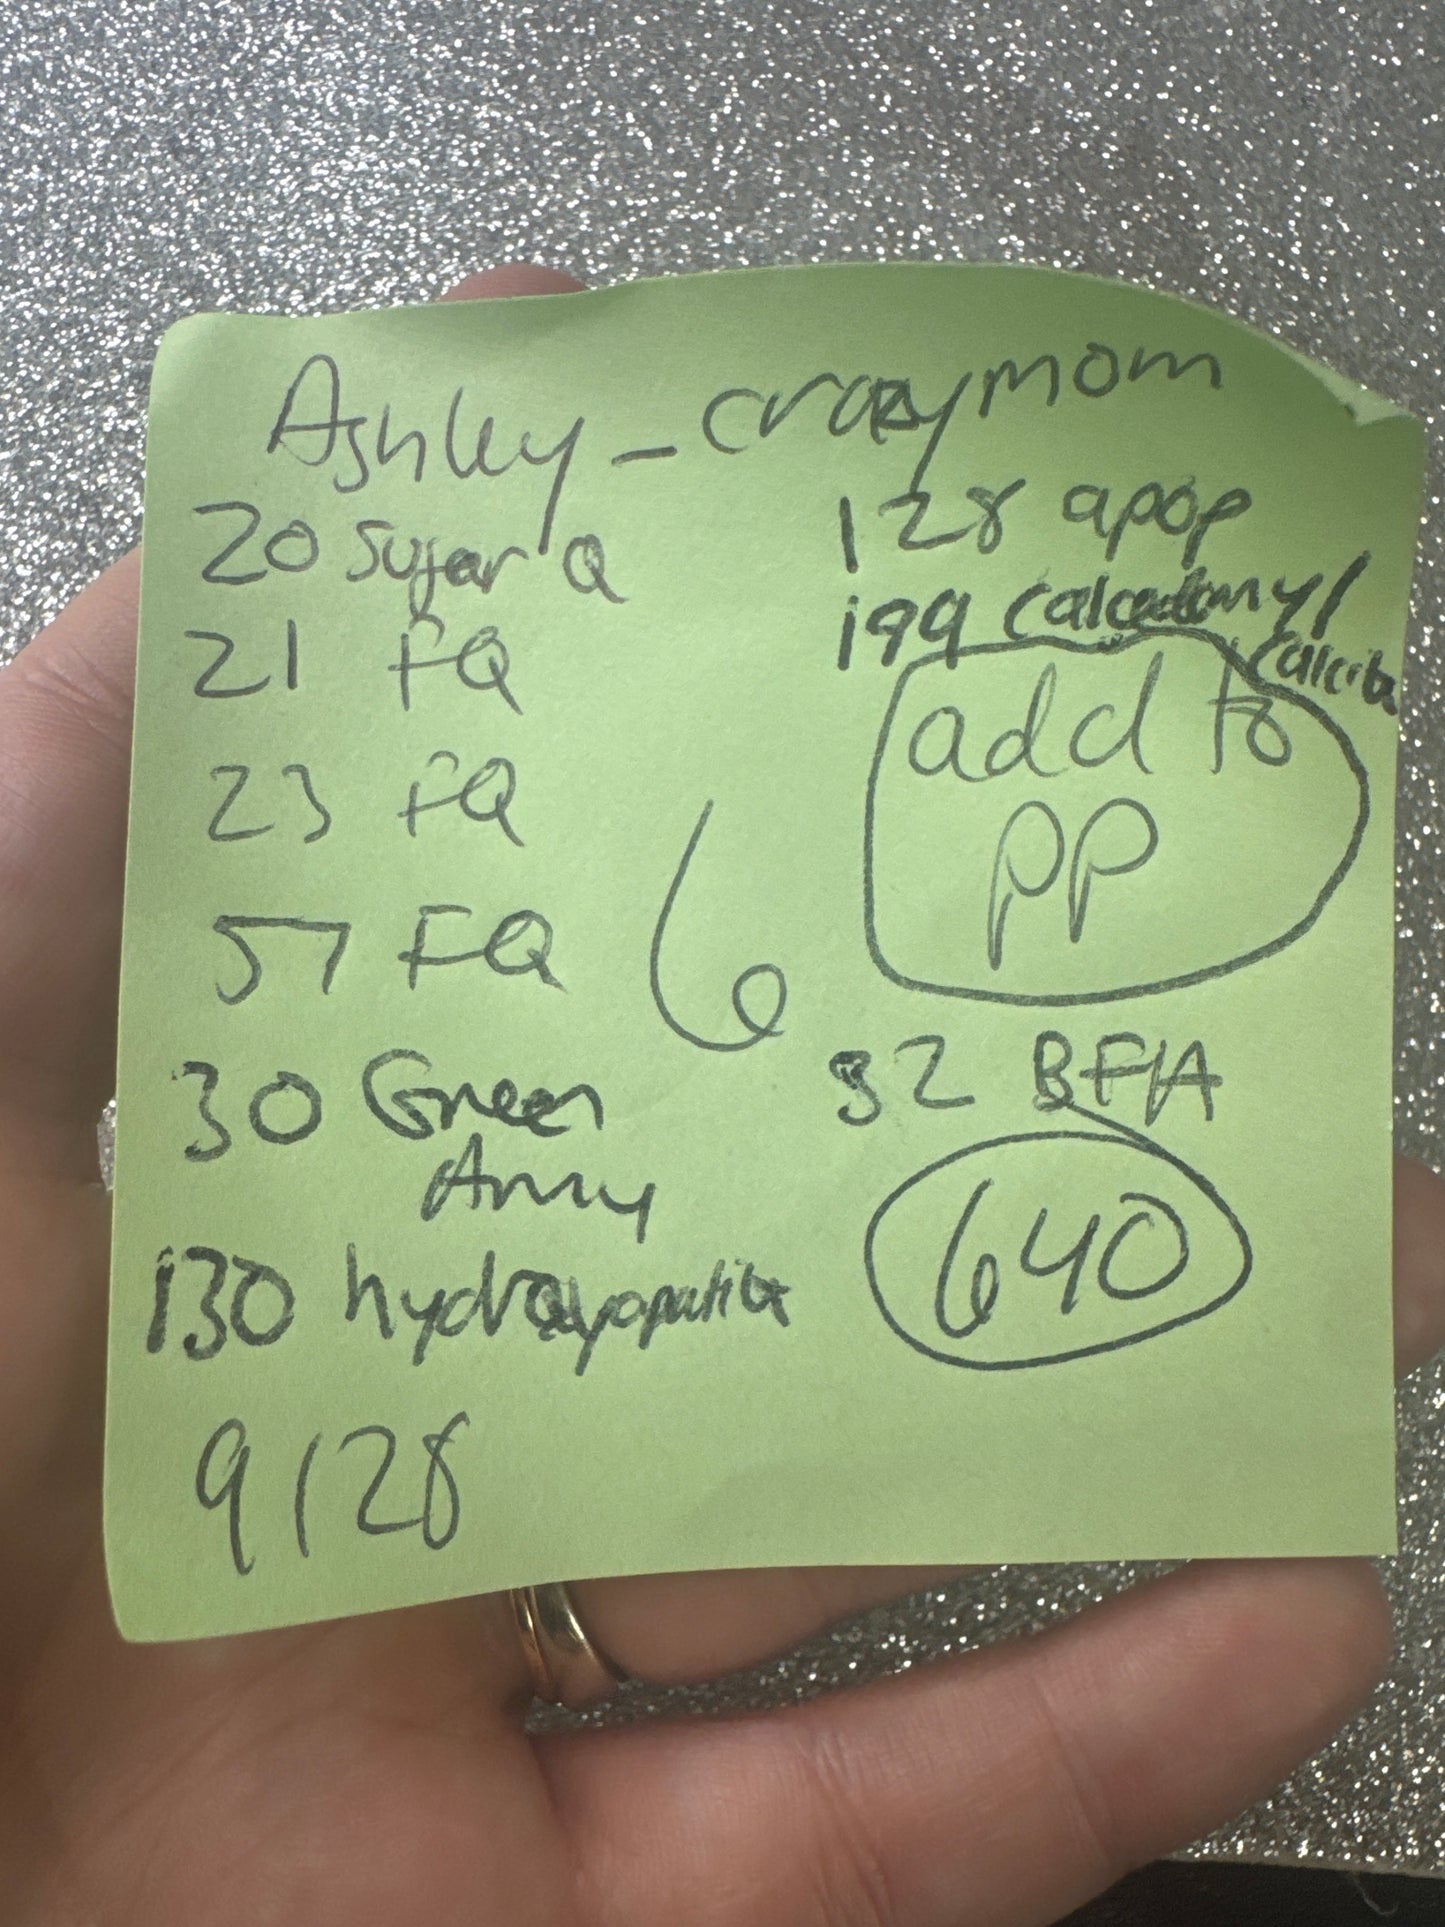 Ashley - crazymom
20 Sugar Q
21 FQ
23 FQ
57 FQ
30 Green
Army
130 hydroxyapatite
9128
6
128 apop
199 Calcedony/
Calcite
add to
PP
32 BFA
640